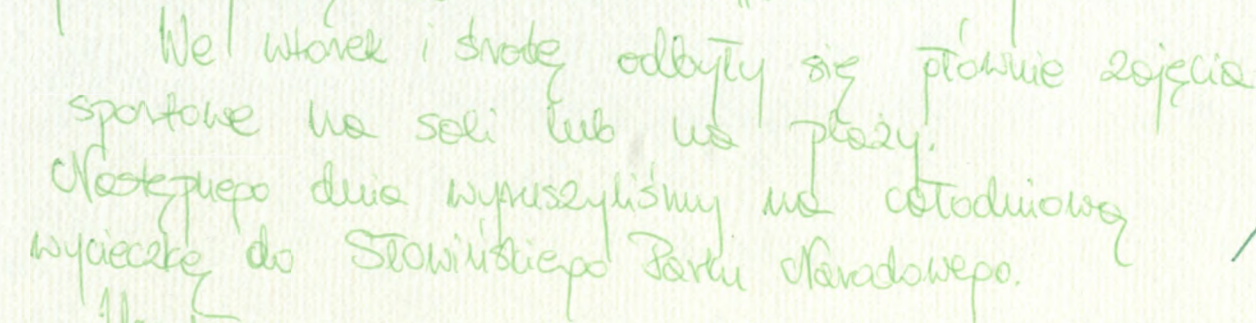 We wtorek i środę odbyły się głównie zajęcia
sportowe na sali lub na plaży.
Następnego dnia wyruszyliśmy na całodniową
wycieczkę do Słowińskiego Parku Narodowego.